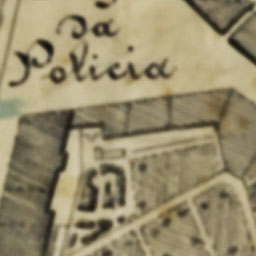 da
Policia